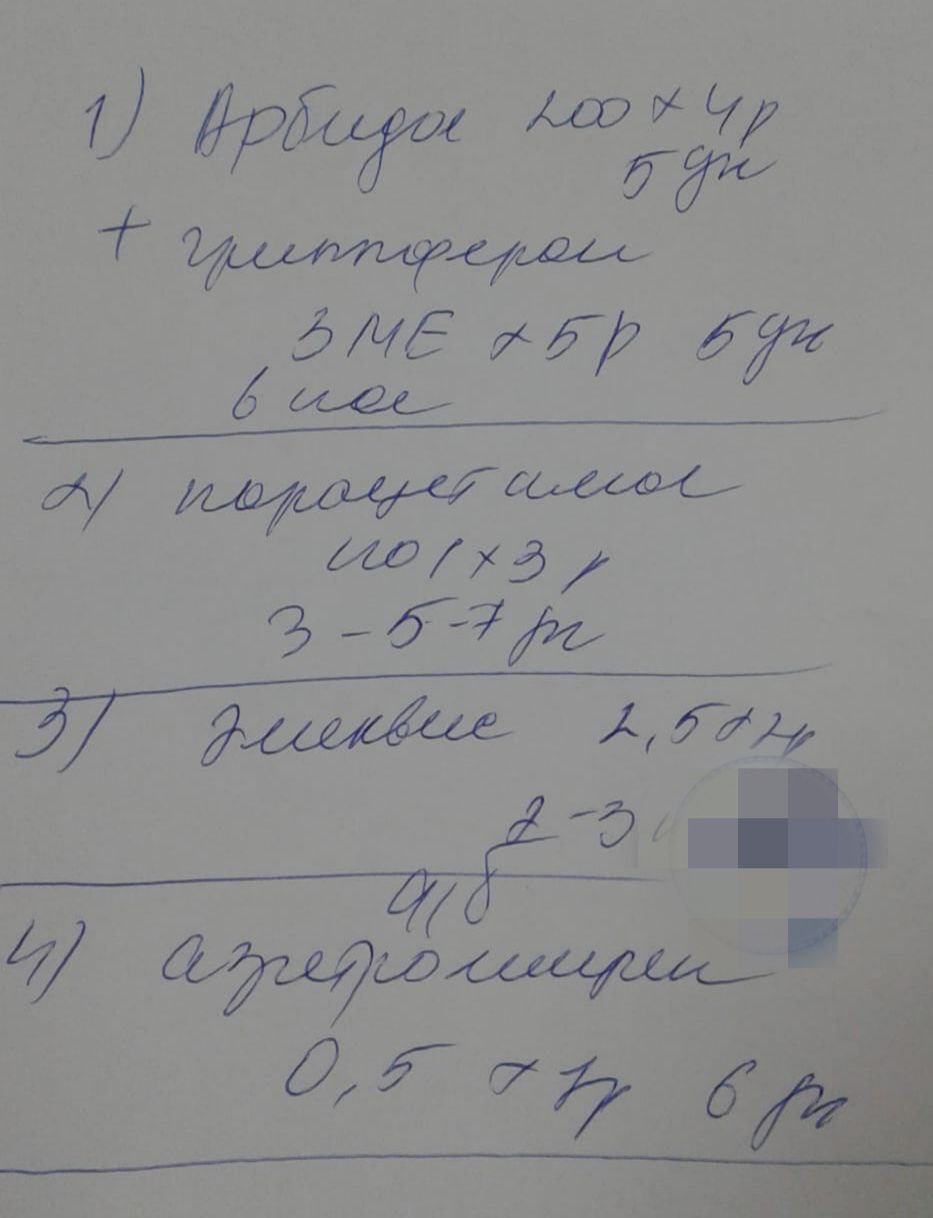 1) Арбидол 200 х 4р
5 дн
+ гриппферон
3 МЕ х 5 р 5 дн
в нос
2) парацетамол
по 1 х 3 р
3 - 5 - 7 дн
3) Эликвис 2,5 х 2р
2 - 3
а/б
4) азитромицин
0,5 х 1р 6 дн